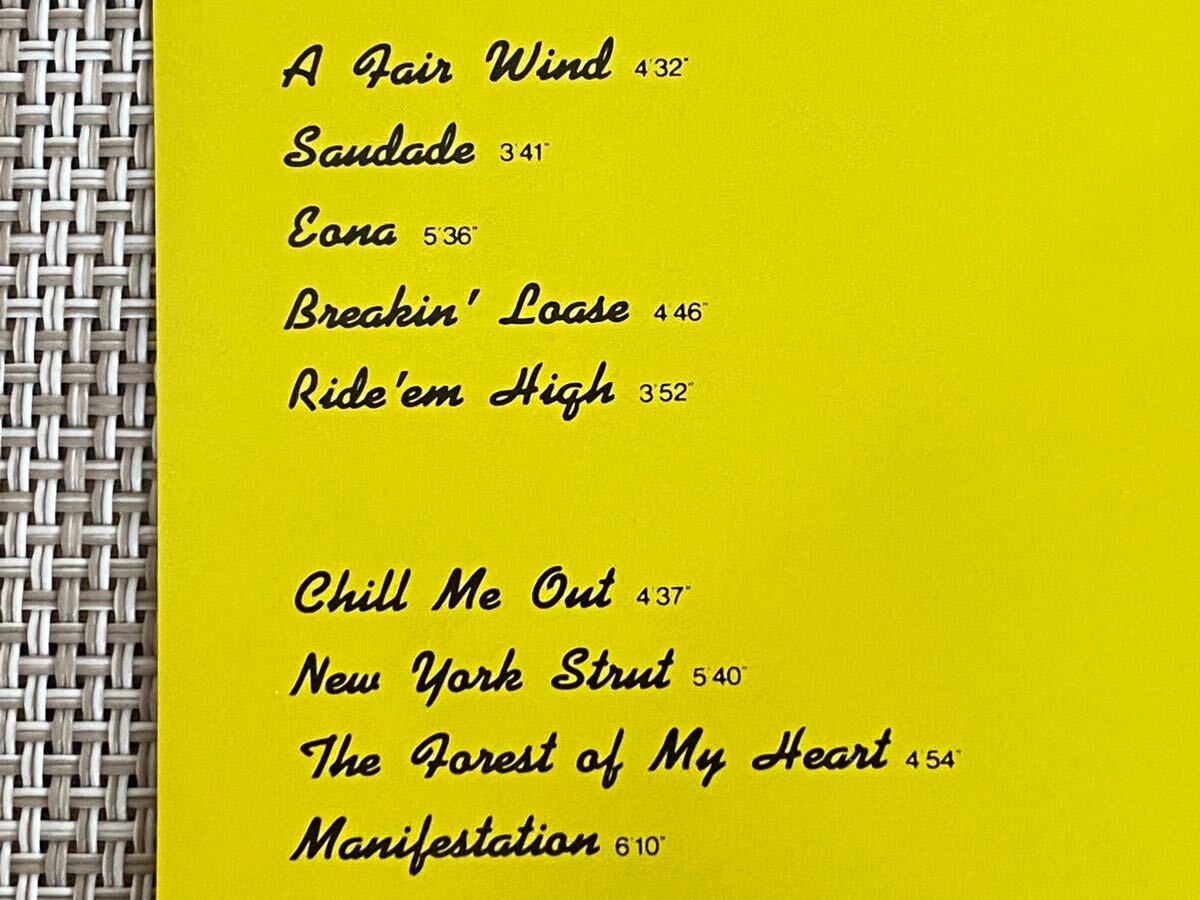 A Fair Wind 4'32"
Saudade 3'41"
Eona 5'36"
Breakin' Loase 4'46"
Ride'em High 3'52"
Chill Me Out 4'37"
New York Strut 5'40"
The Forest of My Heart 4'54"
Manifestation 6'10"